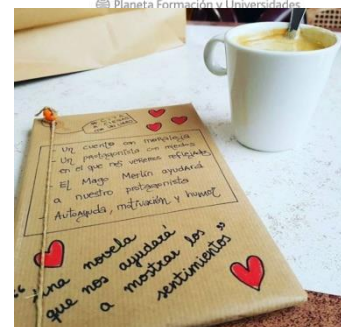 Planeta Formación y Universidades
CITA
A CIEGAS
CON UN LIBRO
- Un cuento con moraleja
- Un protagonista con miedos
en el que nos veremos reflejados
- El Mago Merlín ayudará
a nuestro protagonista
- Autoayuda, motivación y humor
"Una novela
que nos ayudará
a mostrar los
sentimientos"